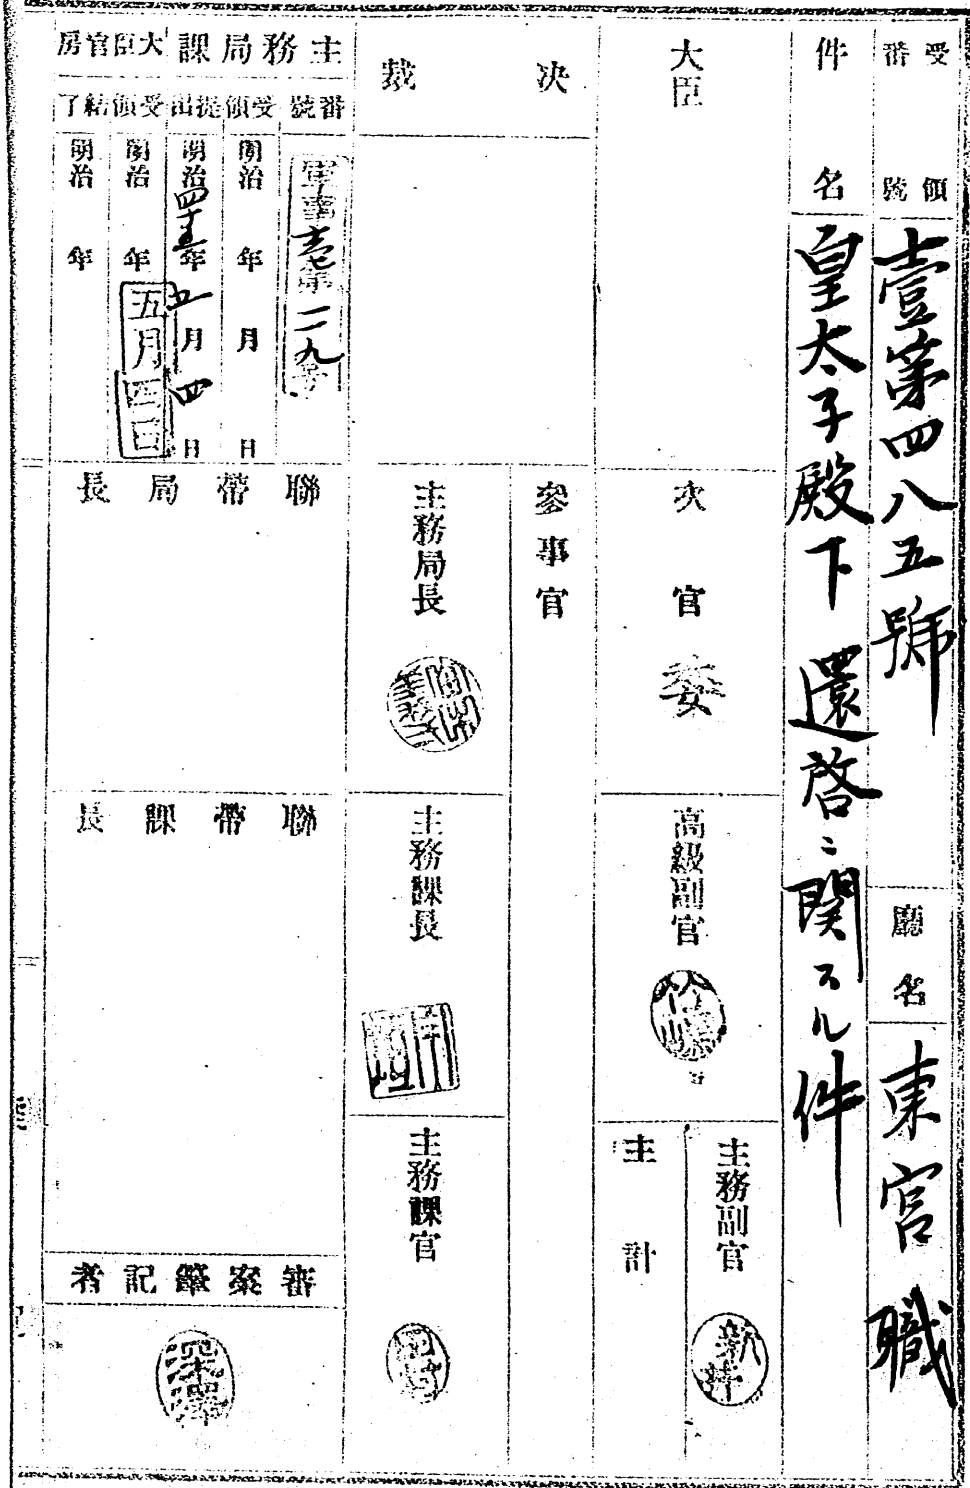 受領番號
壹第四八五號
廳名
東宮職
件名
皇太子殿下還啓ニ関スル件
大臣
次官
委
高級副官
主務副官
新井
主計
決裁
參事官
主務局長
主務課長
主務課官
主務局課
番號
軍事 第一一九号
受領
明治 年 月 日
提出
明治四十五年五月四日
大臣官房
受領
明治 年
五月四日
結了
明治 年
聯帶局長
聯帶課長
審案筆記者
深澤